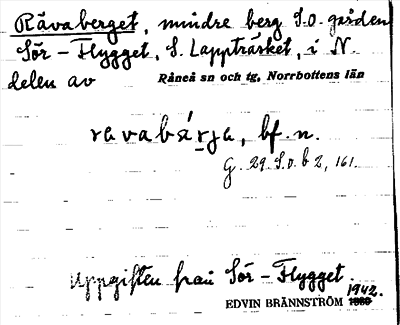 Rävaberget, mindre berg S.O. gården
Sör-Flygget, S. Lappträsket, i N.
delen av Råneå sn och tg, Norrbottens län
ravabárja, bf. n.
G. 29 S.D. b 2, 161.
Uppgiften från Sör-Flygget.
1942.
EDVIN BRÄNNSTRÖM